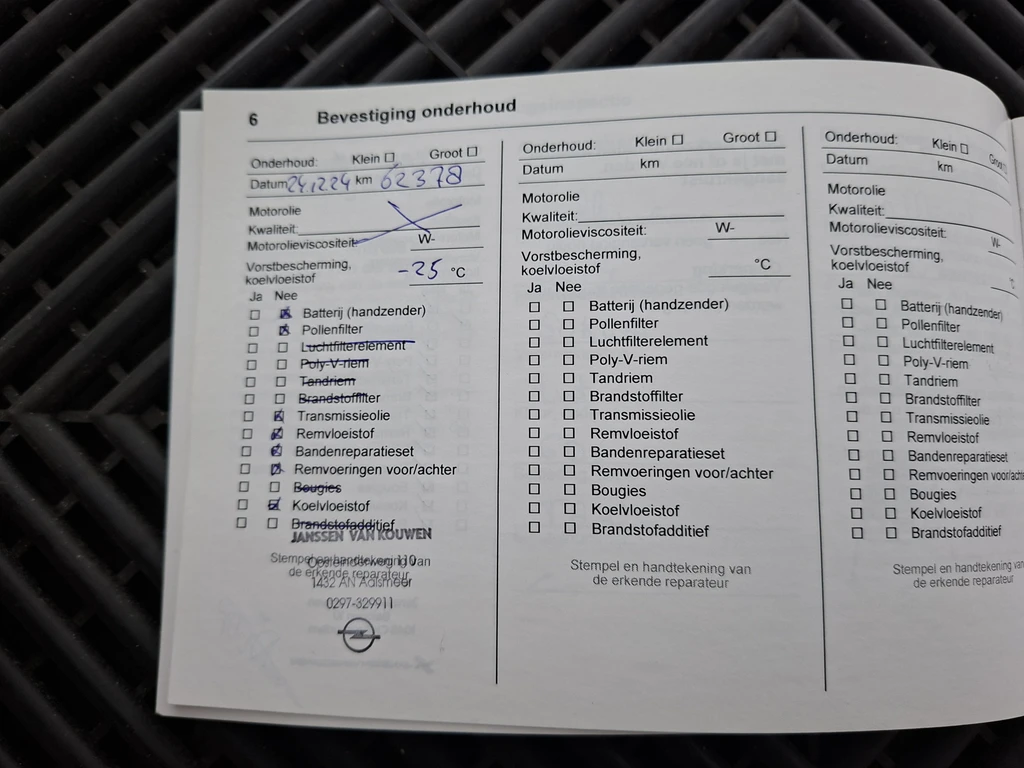 6 Bevestiging onderhoud
Onderhoud: Klein ☐ Groot ☐
Datum 24,2224 km 62378
Motorolie
Kwaliteit:
Motorolieviscositeit: W-
Vorstbescherming,
koelvloeistof -25 °C
Ja Nee
☐ ☒ Batterij (handzender)
☐ ☒ Pollenfilter
☐ ☐ Luchtfilterelement
☐ ☐ Poly-V-riem
☐ ☐ Tandriem
☐ ☐ Brandstoffilter
☐ ☒ Transmissieolie
☐ ☒ Remvloeistof
☐ ☒ Bandenreparatieset
☐ ☒ Remvoeringen voor/achter
☐ ☐ Bougies
☐ ☒ Koelvloeistof
☐ ☐ Brandstofadditief
JANSSEN VAN KOUWEN
Stempel en handtekening van
Oosteinderweg 110
de erkende reparateur
1432 AN Aalsmeer
0297-329911
Onderhoud: Klein ☐ Groot ☐
Datum km
Motorolie
Kwaliteit:
Motorolieviscositeit: W-
Vorstbescherming,
koelvloeistof °C
Ja Nee
☐ ☐ Batterij (handzender)
☐ ☐ Pollenfilter
☐ ☐ Luchtfilterelement
☐ ☐ Poly-V-riem
☐ ☐ Tandriem
☐ ☐ Brandstoffilter
☐ ☐ Transmissieolie
☐ ☐ Remvloeistof
☐ ☐ Bandenreparatieset
☐ ☐ Remvoeringen voor/achter
☐ ☐ Bougies
☐ ☐ Koelvloeistof
☐ ☐ Brandstofadditief
Stempel en handtekening van
de erkende reparateur
Onderhoud: Klein ☐ Groot
Datum km
Motorolie
Kwaliteit:
Motorolieviscositeit: W-
Vorstbescherming,
koelvloeistof °C
Ja Nee
☐ ☐ Batterij (handzender)
☐ ☐ Pollenfilter
☐ ☐ Luchtfilterelement
☐ ☐ Poly-V-riem
☐ ☐ Tandriem
☐ ☐ Brandstoffilter
☐ ☐ Transmissieolie
☐ ☐ Remvloeistof
☐ ☐ Bandenreparatieset
☐ ☐ Remvoeringen voor/acht
☐ ☐ Bougies
☐ ☐ Koelvloeistof
☐ ☐ Brandstofadditief
Stempel en handtekening van
de erkende reparateur